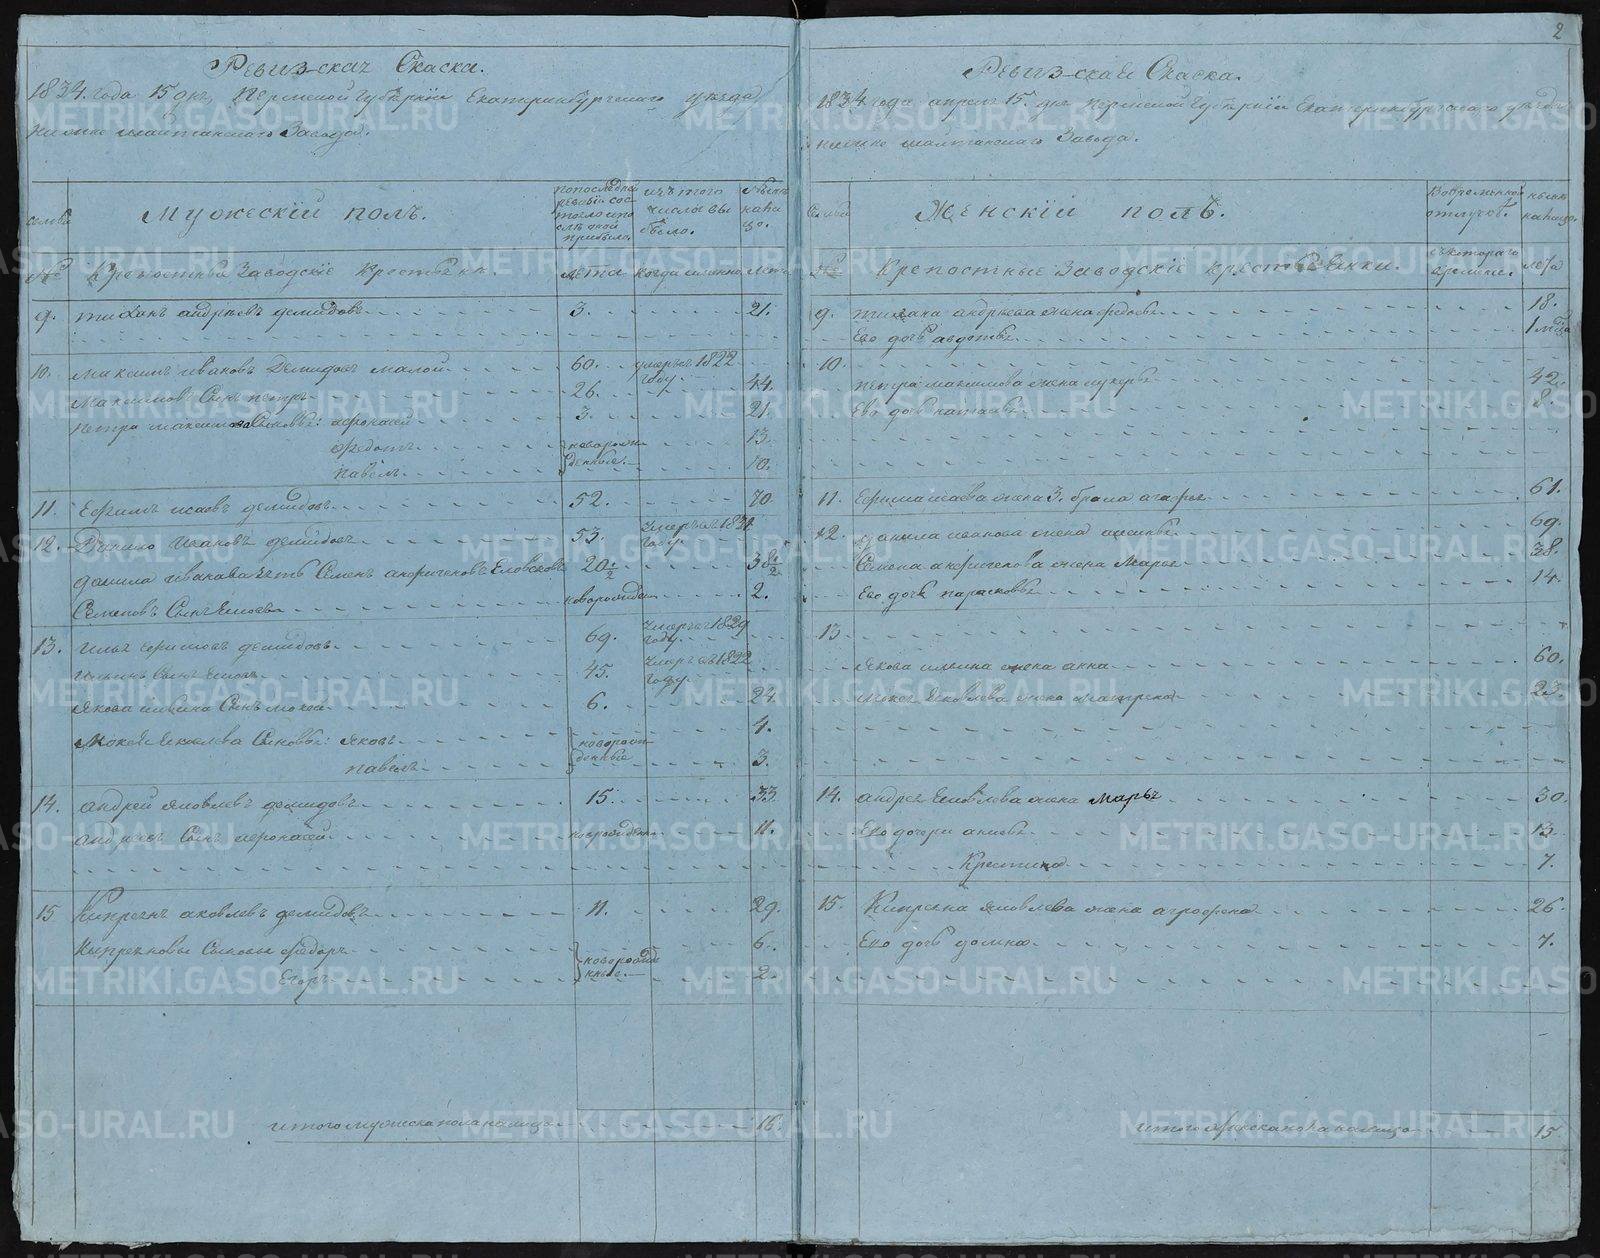 2
Ревизская Скаска.
1834 года 15 дня, Пермской Губернiи Екатеринбургскаго уезда
Нижне шайтанскаго Завода.
семьи
Мужескiй полъ.
по последней ревизiи состояло и после оной прибыло.
изъ того числа выбыло.
ныне на лицо.
№ Крепостные Заводскiе Крестьяне.
лета
когда именно
лета
9. Тихонъ андреевъ демидовъ 3. 21.
10. Максимъ Ивановъ Демидовъ малой 60. умеръ въ 1822 году.
Максимовъ Сынъ петръ 26. 44.
петра максимова Сыновья: афонасей 3. 21.
федотъ новорож 13.
павелъ денные. 10.
11. Ефимъ исаевъ демидовъ 52. 70
12. Данило Ивановъ демидовъ 53. умеръ въ 1831 году
данила иванова зять Семенъ 20½ 38½
Семеновъ Сынъ новорожден 2.
13. илья ефимовъ демидовъ 69. умеръ въ 1829 году
ильинъ Сынъ 45. умеръ въ 1822 году
якова ильина Сынъ мокей 6. 24.
Мокея яковлева Сыновья: яковъ новорож 4.
павелъ денные 3.
14. андрей яковлевъ демидовъ 15. 33
андреевъ Сынъ афонасей новорожден 11.
15 Кипреянъ яковлевъ демидовъ 11. 29.
Кипреяновы Сыновья федоръ новорожде 6.
Егоръ нные. 2.
итого мужеска пола на лицо 16.
Ревизская Скаска.
1834 года апреля 15. дня Пермской Губернiи Екатеринбургскаго уезда
нижне шайтанскаго Завода.
Семьи
Женскiй полъ.
Во временной отлучке.
ныне на лицо.
№ Крепостные Заводскiе крестьянки.
съ котораго времени.
лета
9. тихана андреева жена федосья 18.
Ево дочь авдотья 1 мца
10.
петра максимова жена лукерья 42.
Ево дочь наталья 8.
11. Ефима исаева жена 3. брака агафья 61.
12. данила иванова жена 69.
Семена жена Марья 38.
Ево дочь парасковья 14.
13
якова ильина жена анна 60.
мокея яковлева жена 23.
14. андрея яковлева жена Марья 30.
Ево дочери анисья 13
Крестина 7.
15. Кипреяна яковлева жена агрофена 26.
Ево дочь домна 7.
итого женска пола на лицо 15
METRIKI.GASO-URAL.RU